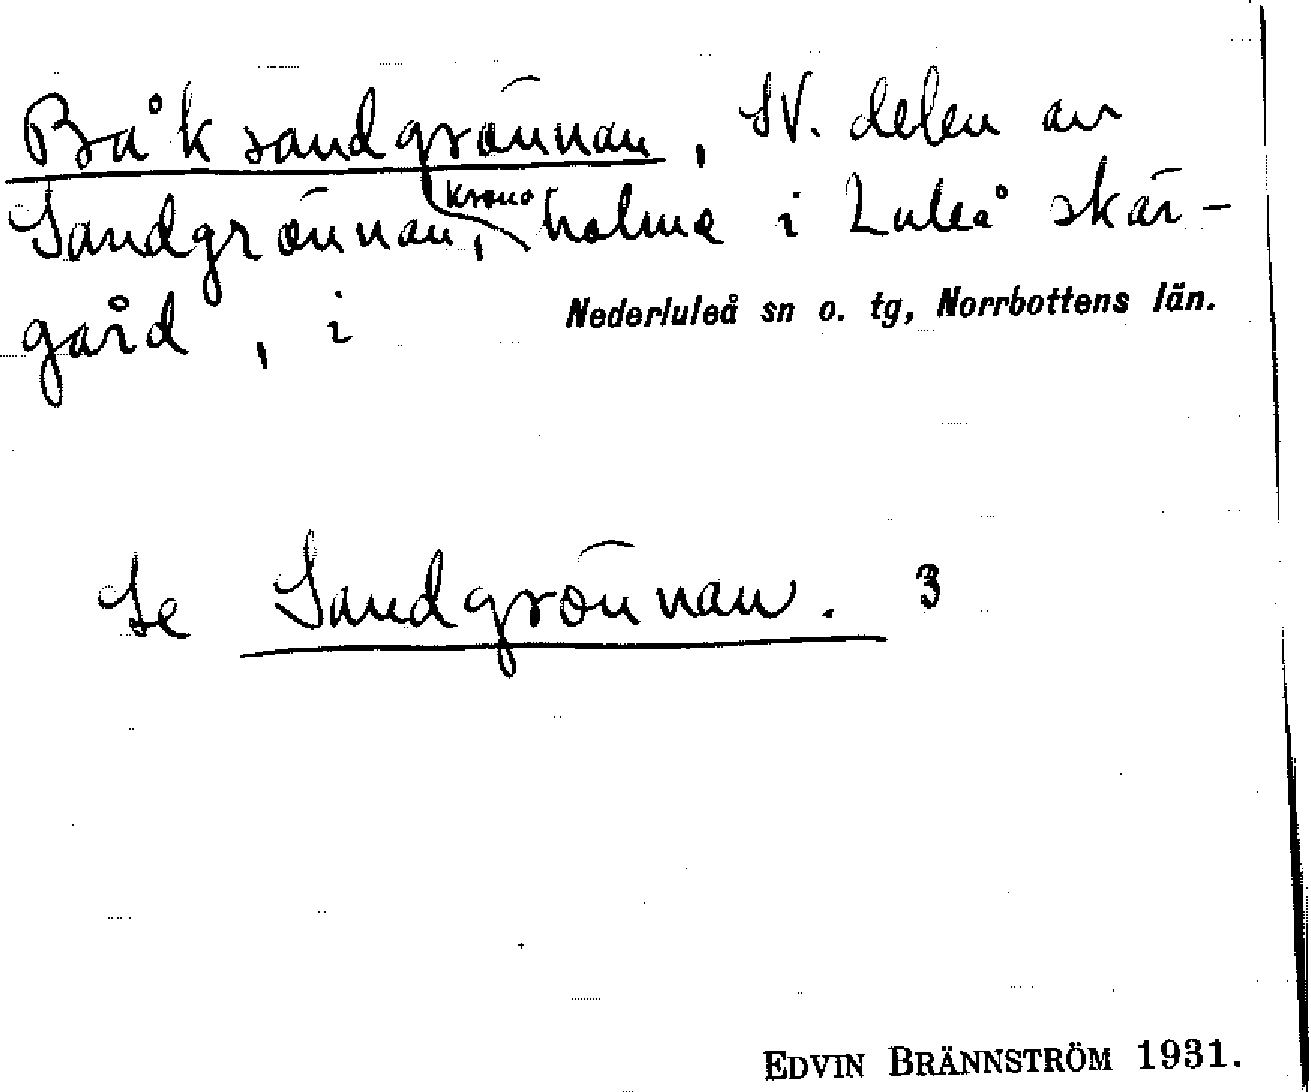 Båksandgrönnan, SV. delen av
Sandgrönnan, kronoholme i Luleå skär-
gård, i Nederluleå sn o. tg, Norrbottens län.
Se Sandgrönnan. 3
EDVIN BRÄNNSTRÖM 1931.